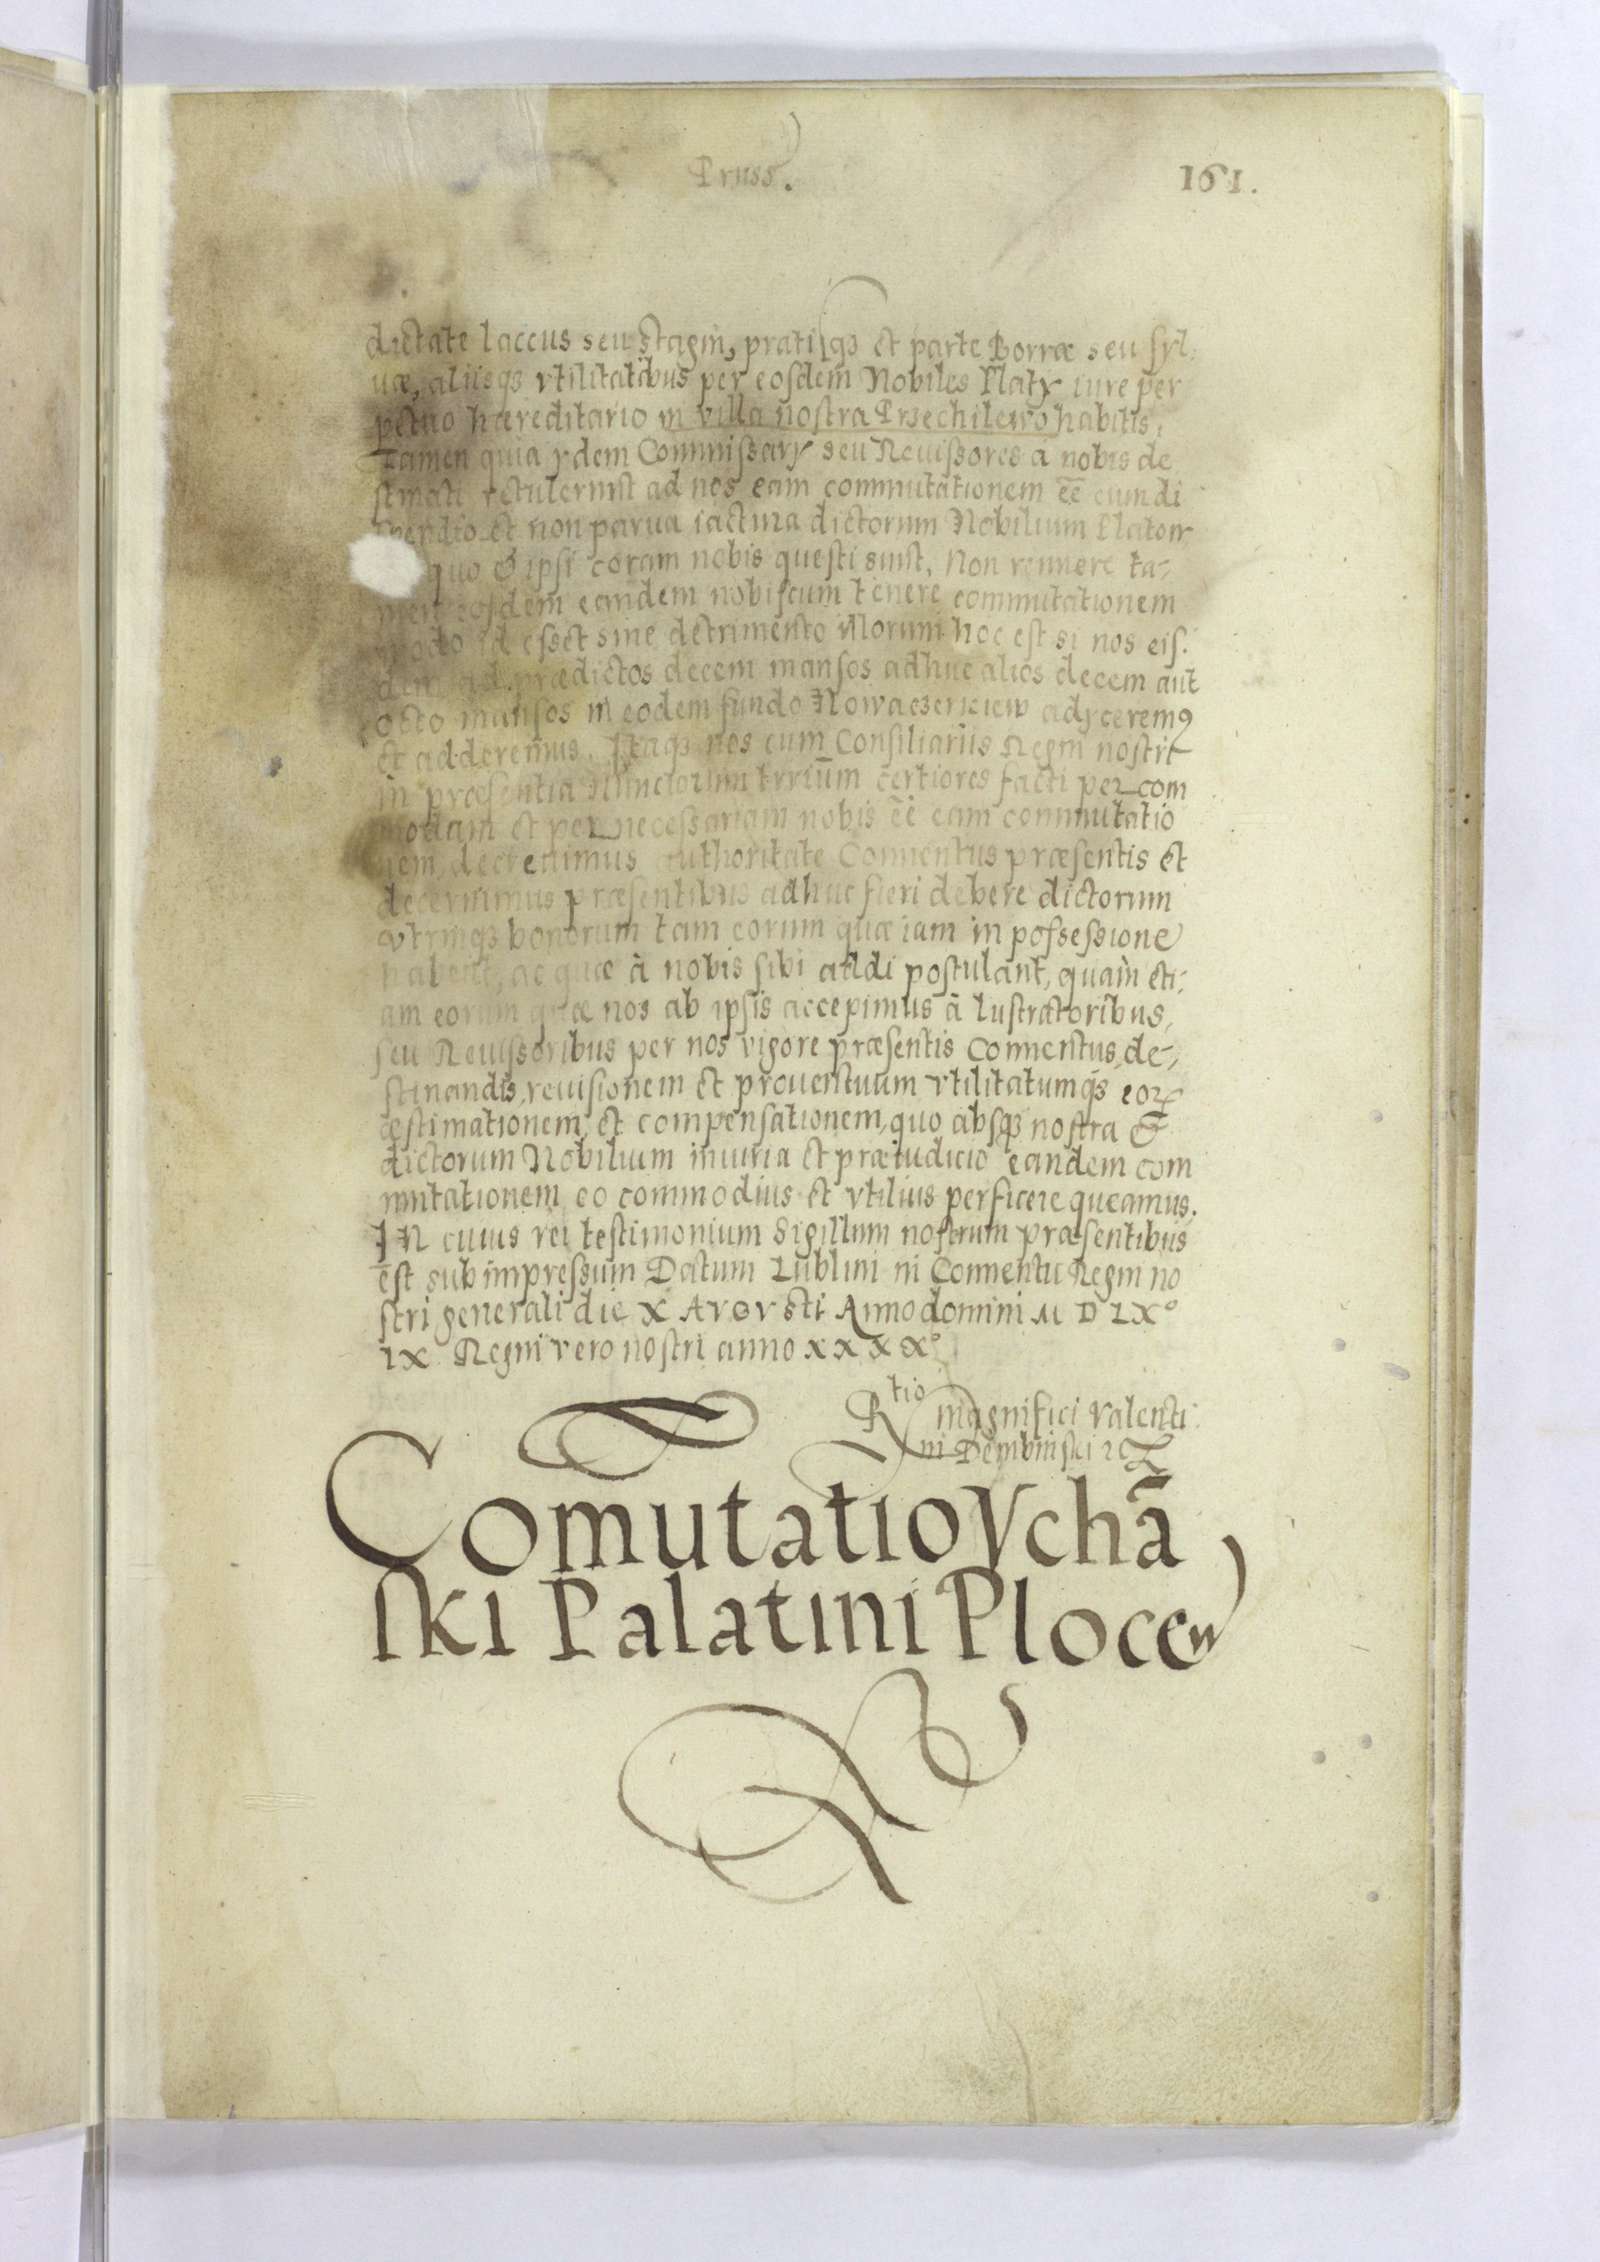 Pruss.
161.
dictate laccus seu stagni, pratiqꝫ et parte Borræ seu syl,
uæ, aliisqꝫ vtilitatibus per eosdem Nobiles Platy iure per
petuo hæreditario in villa nostra Przechilewo habitis,
Tamen quia ydem Commissary seu Reuissores à nobis de
stinati retulerunt ad nos eam commutationem eē cum di
spendio et non parua iactura dictorum Nobilium
quo & ipsi coram nobis questi sunt, Non rennere ta-
men eosdem eandem nobiscum tenere commutationem
modo id esset sine detrimento illorum hoc est si nos eis.
dem ad prædictos decem mansos adhuc alios decem aut
octo mansos in eodem fundo adyceremꝰ
et adderemus. Itaqꝫ nos cum Consiliariis Regni nostri
in præsentia Nunciorum trrium certiores facti per com
modam et per necessariam nobis eē eam commutatio
nem, decreuimus authoritate Conuentus præsentis et
decernimus præsentibus adhuc fieri debere dictorum
vtrinqꝫ bonorum tam eorum quæ iam in possessione
habent, ac quæ à nobis sibi addi postulant, quam eti,
am eorum quæ nos ab ipsis accepimus à lustratoribus,
seu Reuissoribus per nos vigore præsentis Conuentus de-,
stinandis, reuisionem et prouentuum vtilitatumqꝫ eoꝝ
æstimationem, et compensationem, quo absqꝫ nostra &
dictorum Nobilium iniuria et præiudicio eandem com
mutationem eo commodius et vtilius perficere queamus.
IN cuius rei testimonium Sigillum nostrum præsentibus
est subimpressum Datum Lublini in Conuentu Regni no
stri generali die X Avgvsti Anno domini M D LXº
IX Regni vero nostri anno xxxxº
Rtio magnifici Valenti
ni Dembinski
Comutatio Vchā
ski Palatini Plocen